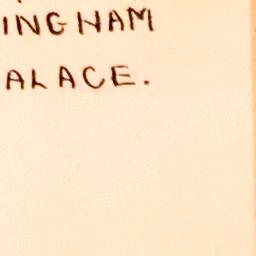 INGHAM
ALACE.